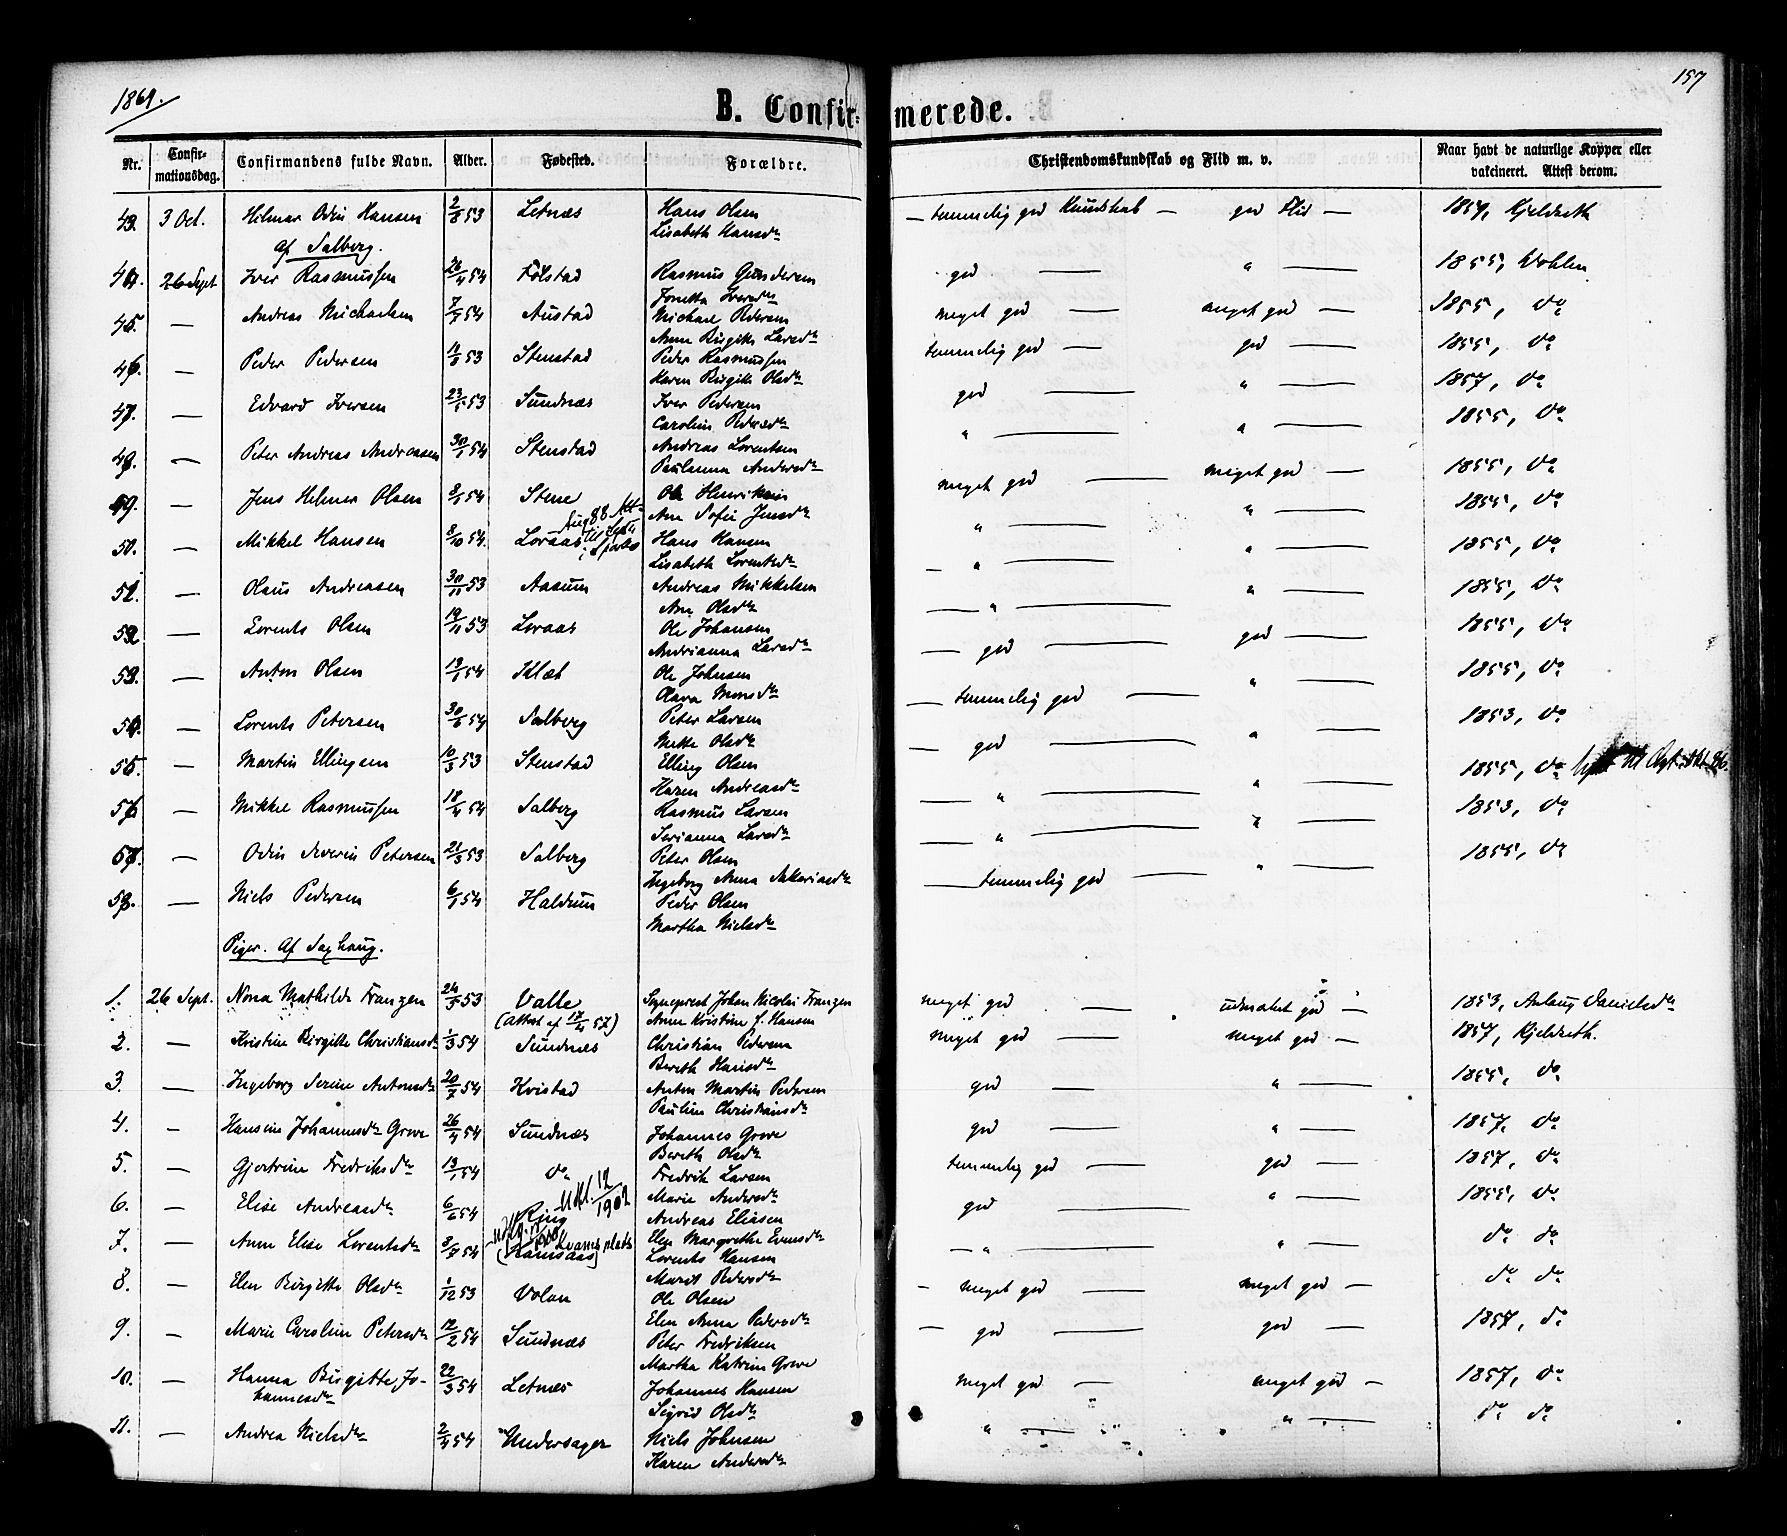 1869.
157
B. Confirmerede.
Nr. Confirmationsdag. Confirmandens fulde Navn. Alder. Fødested. Forældre. Christendomskundskab og Flid m. v. Naar havt de naturlige Kopper eller vakcineret. Attest derom.
43. 3 Oct. Hilmar Odin Hansen 2/8 53 Letnæs Hans Olsen — temmelig god Kundskab — god Flid — 1857, Kjeldseth
Lisabeth Hansdr
Af Salberg.
44. 26 Sept Iver Rasmussen 26/4 54 Følstad Rasmus Gundersen god — " — 1855, Wohlen
Jonetta Iversdr
45. — Andreas Michaelsen 7/7 54 Austad Michael Pedersen meget god — meget god — 1855, do
Anne Birgitte Larsdr
46. — Peder Pedersen 11/8 53 Stenstad Peder Rasmussen temmelig god — god — 1855, do
Karen Birgitte Olsdr
47. — Edvard Iversen 23/5 53 Sundnæs Iver Pedersen god — " — 1857, do
Caroline Pedersdr
48. — Peter Andreas Andreasen 30/1 54 Stenstad Andreas Lorentsen " — " — 1855, do
Paulanna Andersdr
49. — Jens Helmer Olsen 8/1 54 Stene Ole Henriksen meget god — meget god — 1855, do
Ane Sofie Jensdr
Aug 88 Att
50. — Mikkel Hansen 8/10 54 Loraas Hans Hansen " — " — 1855, do
Lisabeth Lorentsdr
51. — Olaus Andreasen 30/11 53 Aasum Andreas Mikkelsen — " — " — 1855, do
Ane Olsdr
52. — Lorents Olsen 19/11 53 Loraas Ole Johansen — " — " — 1855, do
Andrianna Larsdr
53. — Anton Olsen 13/1 54 Klæt Ole Johnsen — god — god — 1855, do
Olava Monsdr
54. — Lorents Petersen 30/6 54 Salberg Peter Larsen — temmelig god — " — 1855, do
Mette Olsdr
55. — Martin Ellingsen 10/3 53 Stenstad Elling Olsen — god — " — 1853, do
Karen Andreasdr
56. — Mikkel Rasmussen 18/4 54 Salberg Rasmus Larsen — " — " — 1855, do
Serianna Larsdr
57. — Odin Severin Petersen 21/3 53 Salberg Peter Olsen — " — " — 1853, do
Ingeborg Anna Sakariasdr
58. — Niels Pedersen 6/1 54 Haldum Peder Olsen — temmelig god — " — 1855, do
Martha Nielsdr
Piger. Af Saxhaug.
1. 26 Sept. Nona Mathilde Franzen 24/5 53 Valle Sogneprest Johan Nicolai Franzen meget god — udmærket god — 1853, Anlaug Danielsdr
(Attest af 17/4 57) Anne Kristine f. Hansen
2. — Kristine Birgitte Christiansdr 1/3 54 Sundnæs Christian Pedersen meget god — meget god — 1857, Kjeldseth.
Bereth Hansdr
3. — Ingeborg Serine Antonsdr 20/7 54 Kvistad Anton Martin Pedersen god — " — 1855, do
Pauline Christiansdr
4. — Hansine Johannesdr Greve 26/4 54 Sundnæs Johannes Greve god — " — 1857, do
Bereth Olsdr
5. — Gjertrine Fredriksdr 13/1 54 do Fredrik Larsen temmelig god — god — 1857, do
Marie Andersdr
12/1902
6. — Elise Andreasdr 6/6 54 Ring Andreas Eliasen god — " — 1855, do
Elen Margrethe Evensdr
7. — Anne Elise Lorentsdr 8/7 54 Kvams plads Lorents Hansen — " — " — do do
Marit Pedersdr
8. — Elen Birgitte Olsdr 1/12 53 Volan Ole Olsen — meget god — meget god — do do
Elen Anna Pedersdr
9. — Marie Caroline Petersdr 12/2 54 Sundnæs Peter Fredriksen — god — god — 1857, do
Martha Katrine Greve
10. — Hanna Birgitte Johannesdr 22/3 54 Letnæs Johannes Hansen meget god — meget god — 1857, do
Sigrid Olsdr
11. — Andrea Nielsdr 2/4 54 Undersager Niels Johnsen " — " — do do
Karen Andersdr